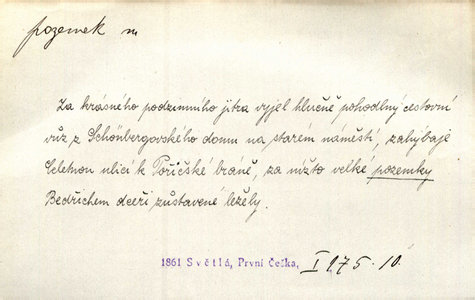 pozemek m
Za krásného podzimního jitra vyjel hlučně pohodlný cestovní
vůz z Schönbergovského domu na starém náměstí, zahýbaje
Celetnou ulicí k Poříčské bráně, za nížto velké pozemky
Bedřichem dceři zůstavené ležely.
1861 Světlá, První Češka, I 275. 10.